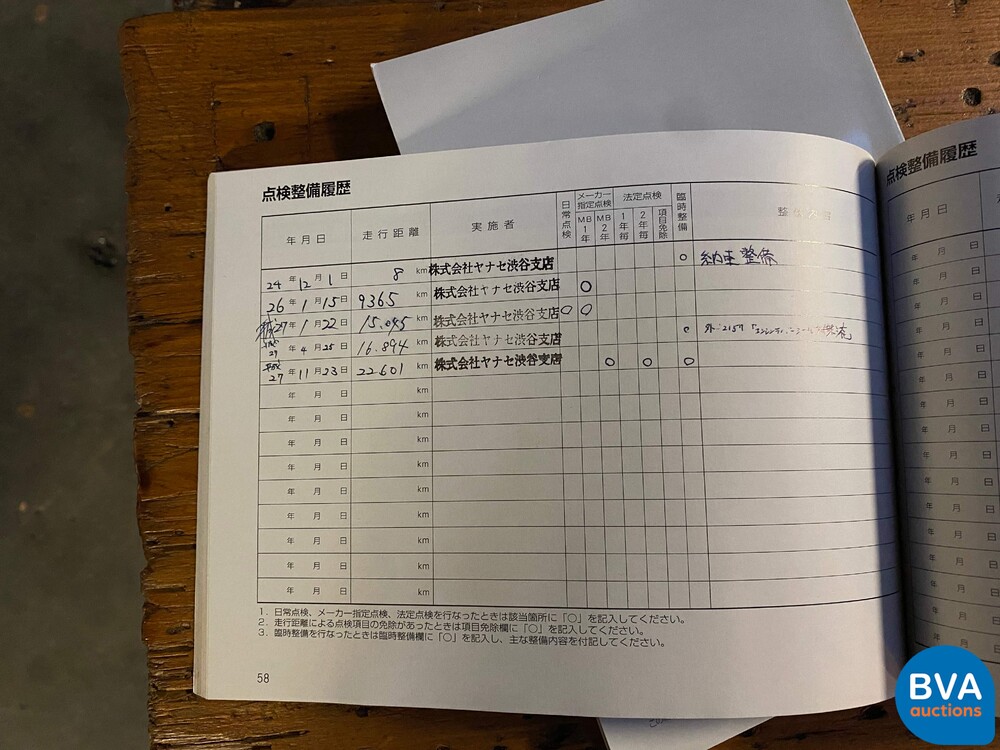 点検整備履歴
点検整備履歴
年月日 走行距離 実施者 日常点検 メーカー指定点検 MB1年 MB2年 法定点検 1年毎 2年毎 項目免除 臨時整備
年月日
24年12月1日 8km 株式会社ヤナセ渋谷支店 ○ 納車整備
26年1月15日 9365 km 株式会社ヤナセ渋谷支店 ○
27年1月22日 15.045 km 株式会社ヤナセ渋谷支店 ○ ○
年4月25日 16.894 km 株式会社ヤナセ渋谷支店 ○
平成27年11月23日 22.601 km 株式会社ヤナセ渋谷支店 ○ ○ ○
年 月 日 km
年 月 日 km
年 月 日 km
年 月 日 km
年 月 日 km
年 月 日 km
年 月 日 km
年 月 日 km
年 月 日 km
1．日常点検、メーカー指定点検、法定点検を行なったときは該当箇所に「○」を記入してください。
2．走行距離による点検項目の免除があったときは項目免除欄に「○」を記入してください。
3．臨時整備を行なったときは臨時整備欄に「○」を記入し、主な整備内容を付記してください。
58
BVA
auctions